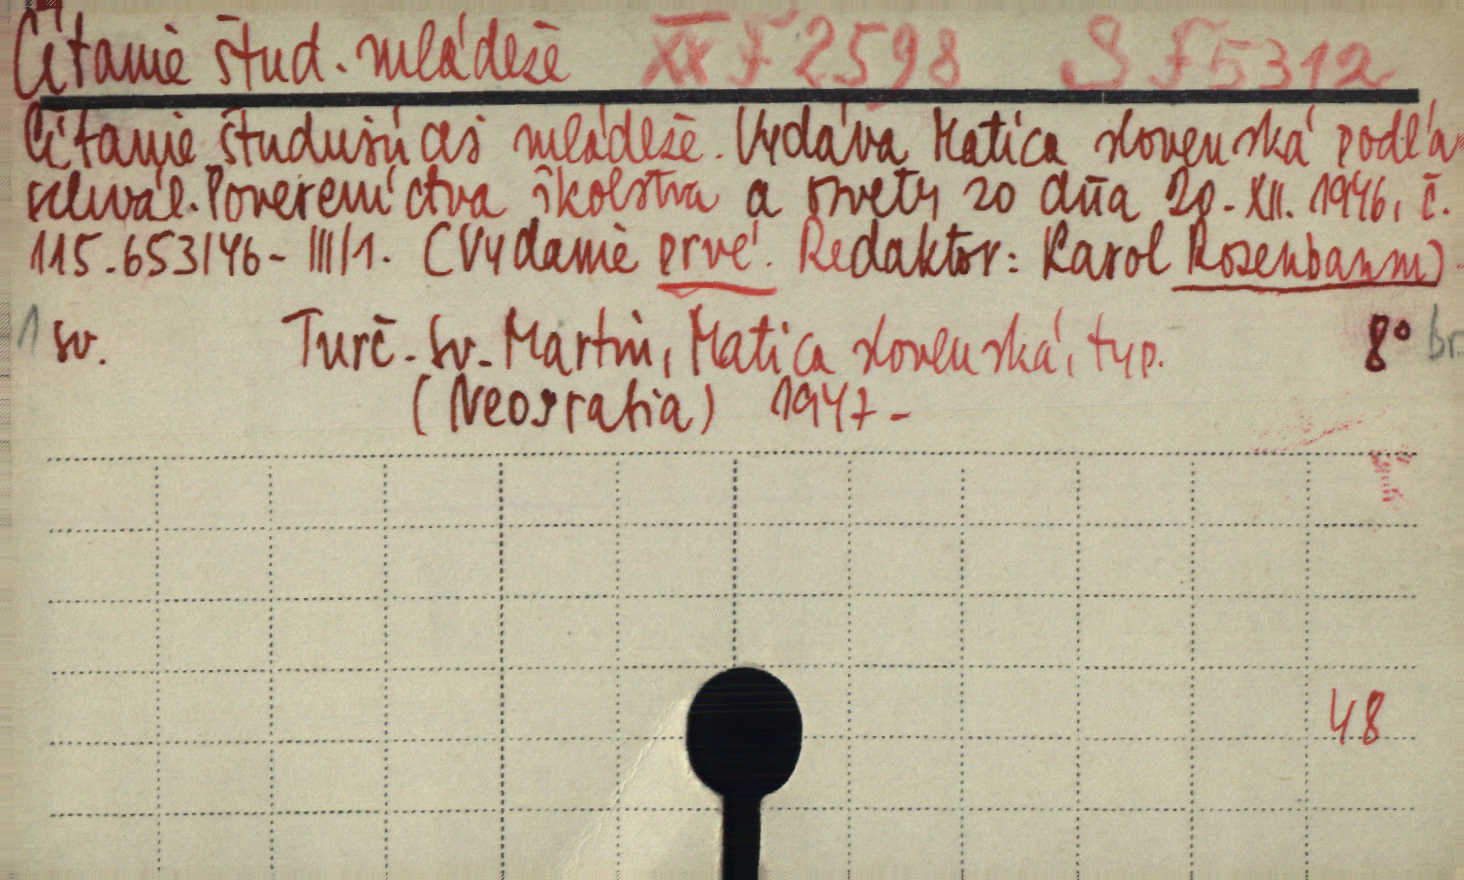 Čítanie štud. mládeže XX F 2598 S F 5312
Čítanie študujúcej mládeže. Vydáva Matica slovenská podľa
schvál. Povereníctva školstva a osvety zo dňa 20. XII. 1946, č.
115.653/46-III/1. (Vydanie prvé. Redaktor: Karol Rosenbaum).
1 sv. Turč. Sv. Martin, Matica slovenská, typ. 8° br.
(Neografia) 1947-
48